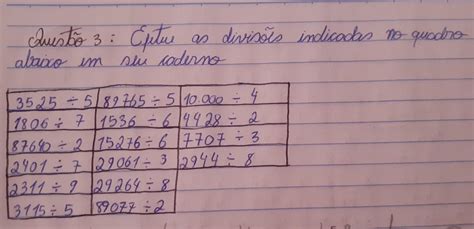 Questão 3: Efetue as divisões indicadas no quadro
abaixo em seu caderno
3525 ÷ 5 89765 ÷ 5 10.000 ÷ 4
1806 ÷ 7 1536 ÷ 6 4428 ÷ 2
87640 ÷ 2 15276 ÷ 6 7707 ÷ 3
2401 ÷ 7 29061 ÷ 3 2944 ÷ 8
2311 ÷ 9 29264 ÷ 8
3115 ÷ 5 89077 ÷ 2